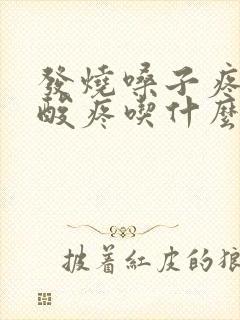 發燒嗓子疼
酸疼喫什麼
披着紅皮的狼